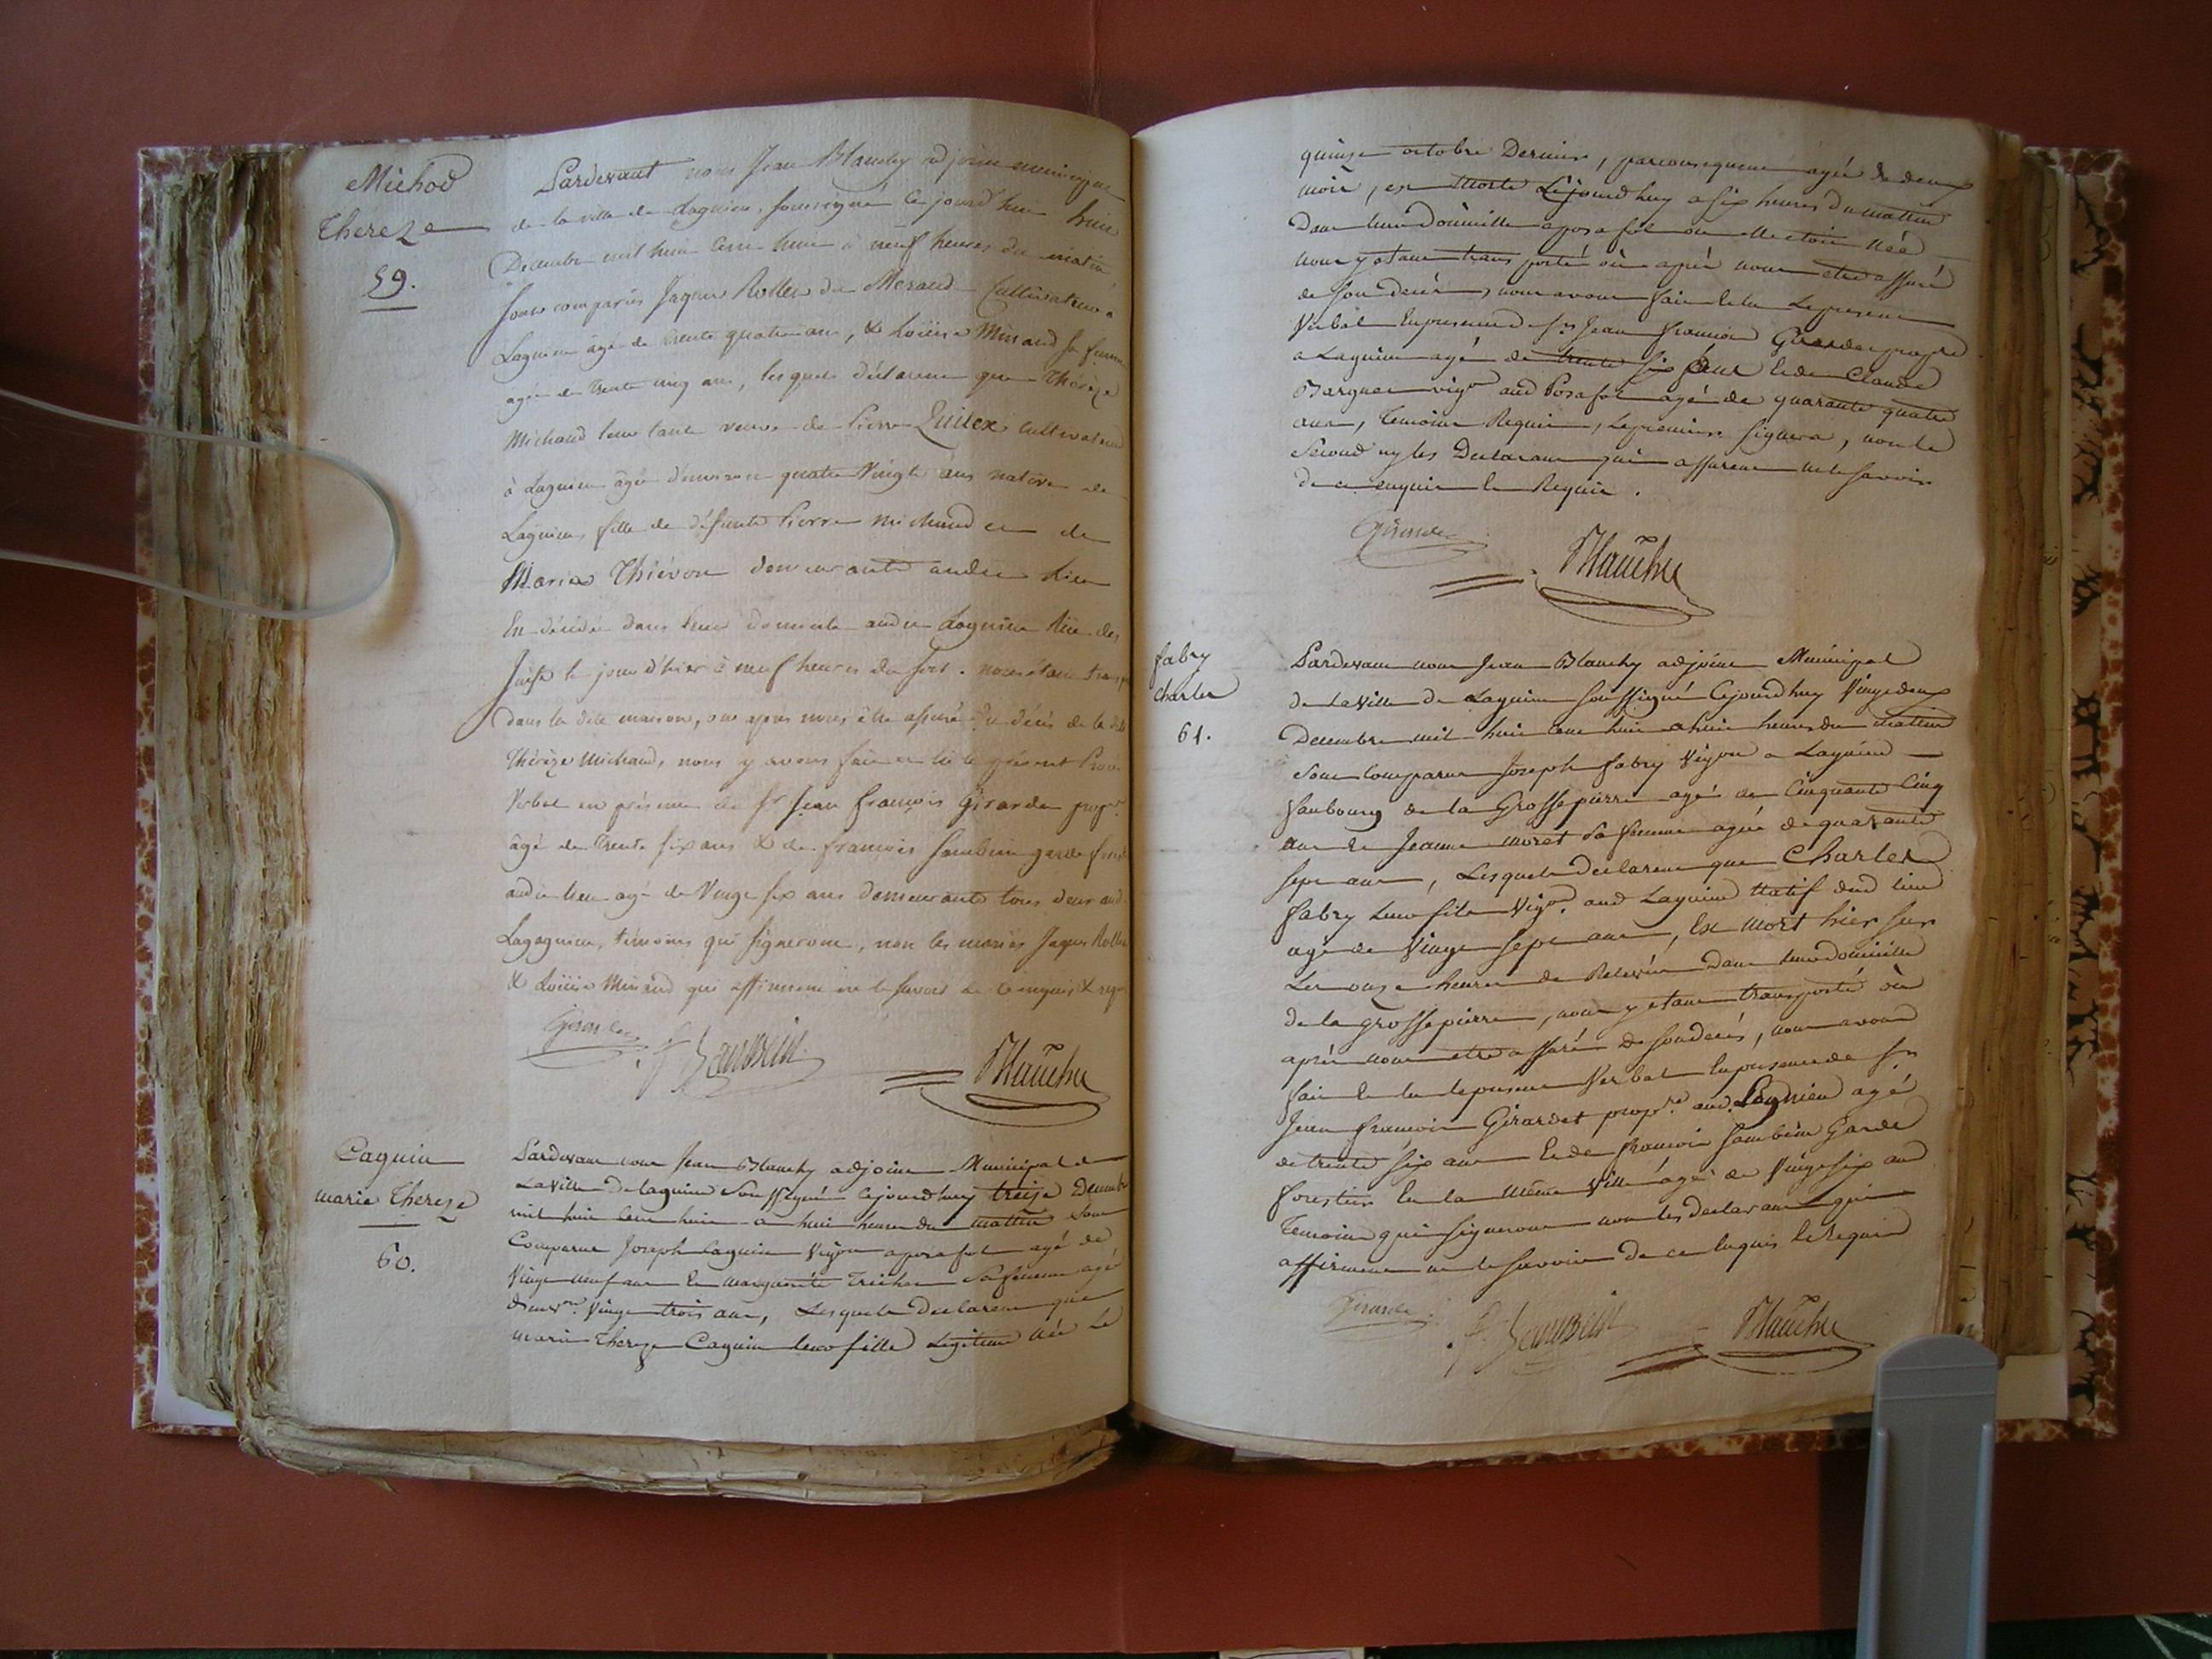 Michod
Thereze
59.
Pardevant nous Jean Blanchy adjoint municipal
de la ville de Lagnieu, soussigné cejourd'hui huit
Decembre mil huit cent huit à neuf heures du matin
sont comparus Jaques Rollet dit Meraud Cultivateur à
Lagnieu âgé de trente quatre ans, & Loüise Minand sa femme
agée de trente cinq ans, lesquels déclarent que Thérèze
Michaud leur tante veuve de Pierre Cultivateur
à Lagnieu âgée d'environ quatre Vingts ans native de
Lagnieu, fille de défunts Pierre Michaud et de
Maria Thiévon demeurante audit lieu
Est décédée dans leur domicile audit Lagnieu Rüe des
Juifs le jour d'hier à neuf heures du soir. nous étant transp
dans la dite maison, ou après nous être assuré du décès de la dite
Thérèze Michaud, nous y avons fait et lu le présent Procès
Verbal en présence de Sr Jean françois Girardet prop.re
âgé de Trente six ans & de françois Jambin garde forest
audit lieu agé de Vingt six ans demeurants tous deux aud.
Lagagnieu, témoins qui signeront, non les mariés Jaques Rollet
& Loüise Minand qui affirment ne le savoir de ce enquis & requis
Girardet
f. Jambin
Blanchy
Caguin
marie Thereze
60.
Pardevant nous Jean Blanchy adjoint Municipal de
La Ville de Lagnieu Soussigné cejourdhuy treize Decembre
mil huit cent huit a huit heures du matin sont
Comparus Joseph Caguin Vigon a posafol agé de
Vingt neuf ans Et marguerite Trichon Sa femme agée
d'env.on Vingt trois ans, Lesquels Declarent que
marie Thereze Caguin leur fille Legitime née Le
quinze octobre Dernier, parconsequent agée de deux
mois, est morte Cejourdhuy a six heures du matin
Dans leur Domicille a posafol ou elle etoit Née
nous y etant transporté où après nous etre assuré
de son decès, nous avons fait et lu Le present
Verbal En presence de Sr Jean françois Girardet propre
a Lagnieu agé de trente six ans Et de Claude
Barquet vigon aud Posafol agé de quarante quatre
ans, Temoins Requis, Le premier signera, non le
Second ny les Declarants qui assurent ne le savoir
de ce enquis Et Requis.
Girardet
Blanchy
fabry
Charles
61.
Pardevant nous Jean Blanchy adjoint Municipal
de La Ville de Lagnieu Soussigné Cejourdhuy Vingt deux
Decembre mil huit cent huit a huit heures du matin
Sont Comparus Joseph fabry Vigon a Lagnieu
faubourg de la Grossepierre agé de Cinquante Cinq
ans Et Jeanne moret Sa femme agée de quarante
sept ans, Lesquels declarent que Charles
fabry Leur fils Vigon. aud Lagnieu Natif dud lieu
agé de Vingt sept ans, Est mort hier sur
Les onze heures de Relevée Dans leur domicille
de la grossepierre, nous y etant transporté où
après nous etre assuré de son decès, nous avons
fait Et lu le present Verbal En presence de Sr
Jean françois Girardet prop.re aud. Lagnieu agé
de trente six ans Et de françois Jambin Garde
forestier En la même Ville agé de Vingt six ans
Temoins qui signeront non les declarants qui
affirment ne le savoir De ce Enquis Et Requis
Girardet
f. Jambin
Blanchy